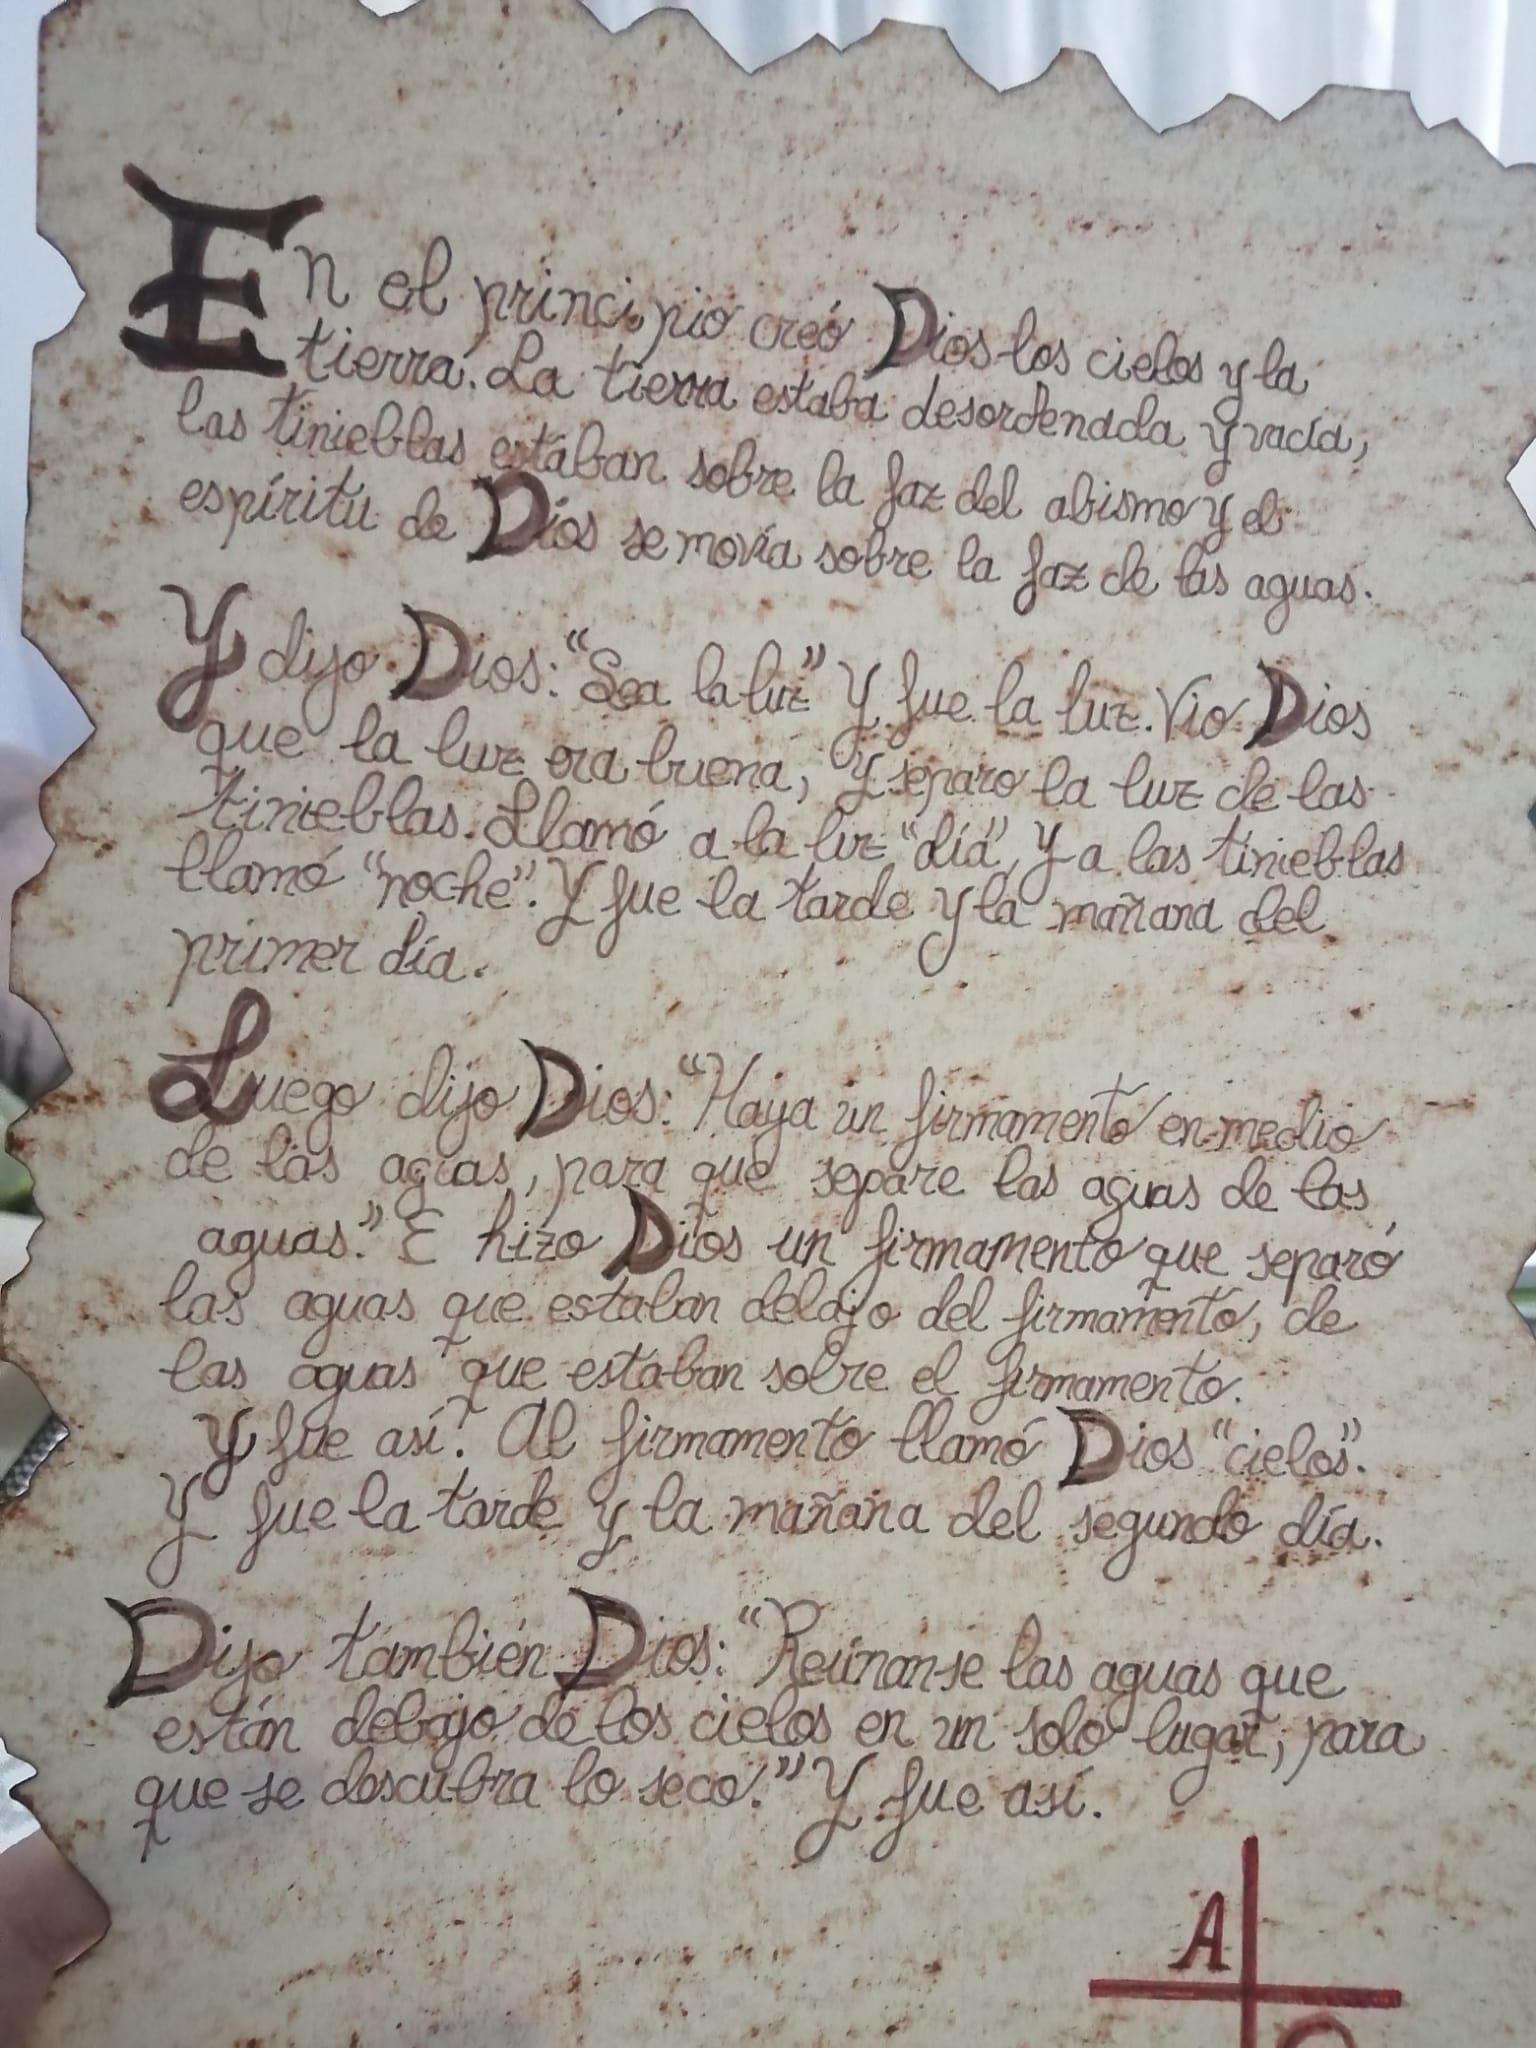 En el principio creó Dios los cielos y la
tierra. La tierra estaba desordenada y vacía,
las tinieblas estaban sobre la faz del abismo y el
espíritu de Dios se movía sobre la faz de las aguas.
Y dijo Dios: "Sea la luz" Y fue la luz. Vio Dios
que la luz era buena, y separo la luz de las
tinieblas. Llamó a la luz "día", y a las tinieblas
llamó "noche". Y fue la tarde y la mañana del
primer día.
Luego dijo Dios: "Haya un firmamento en medio
de las aguas, para que separe las aguas de las
aguas." E hizo Dios un firmamento que separó
las aguas que estaban debajo del firmamento, de
las aguas que estaban sobre el firmamento.
Y fue así. Al firmamento llamó Dios "cielos".
Y fue la tarde y la mañana del segundo día.
Dijo también Dios: "Reúnanse las aguas que
están debajo de los cielos en un solo lugar, para
que se descubra lo seco." Y fue así.
A